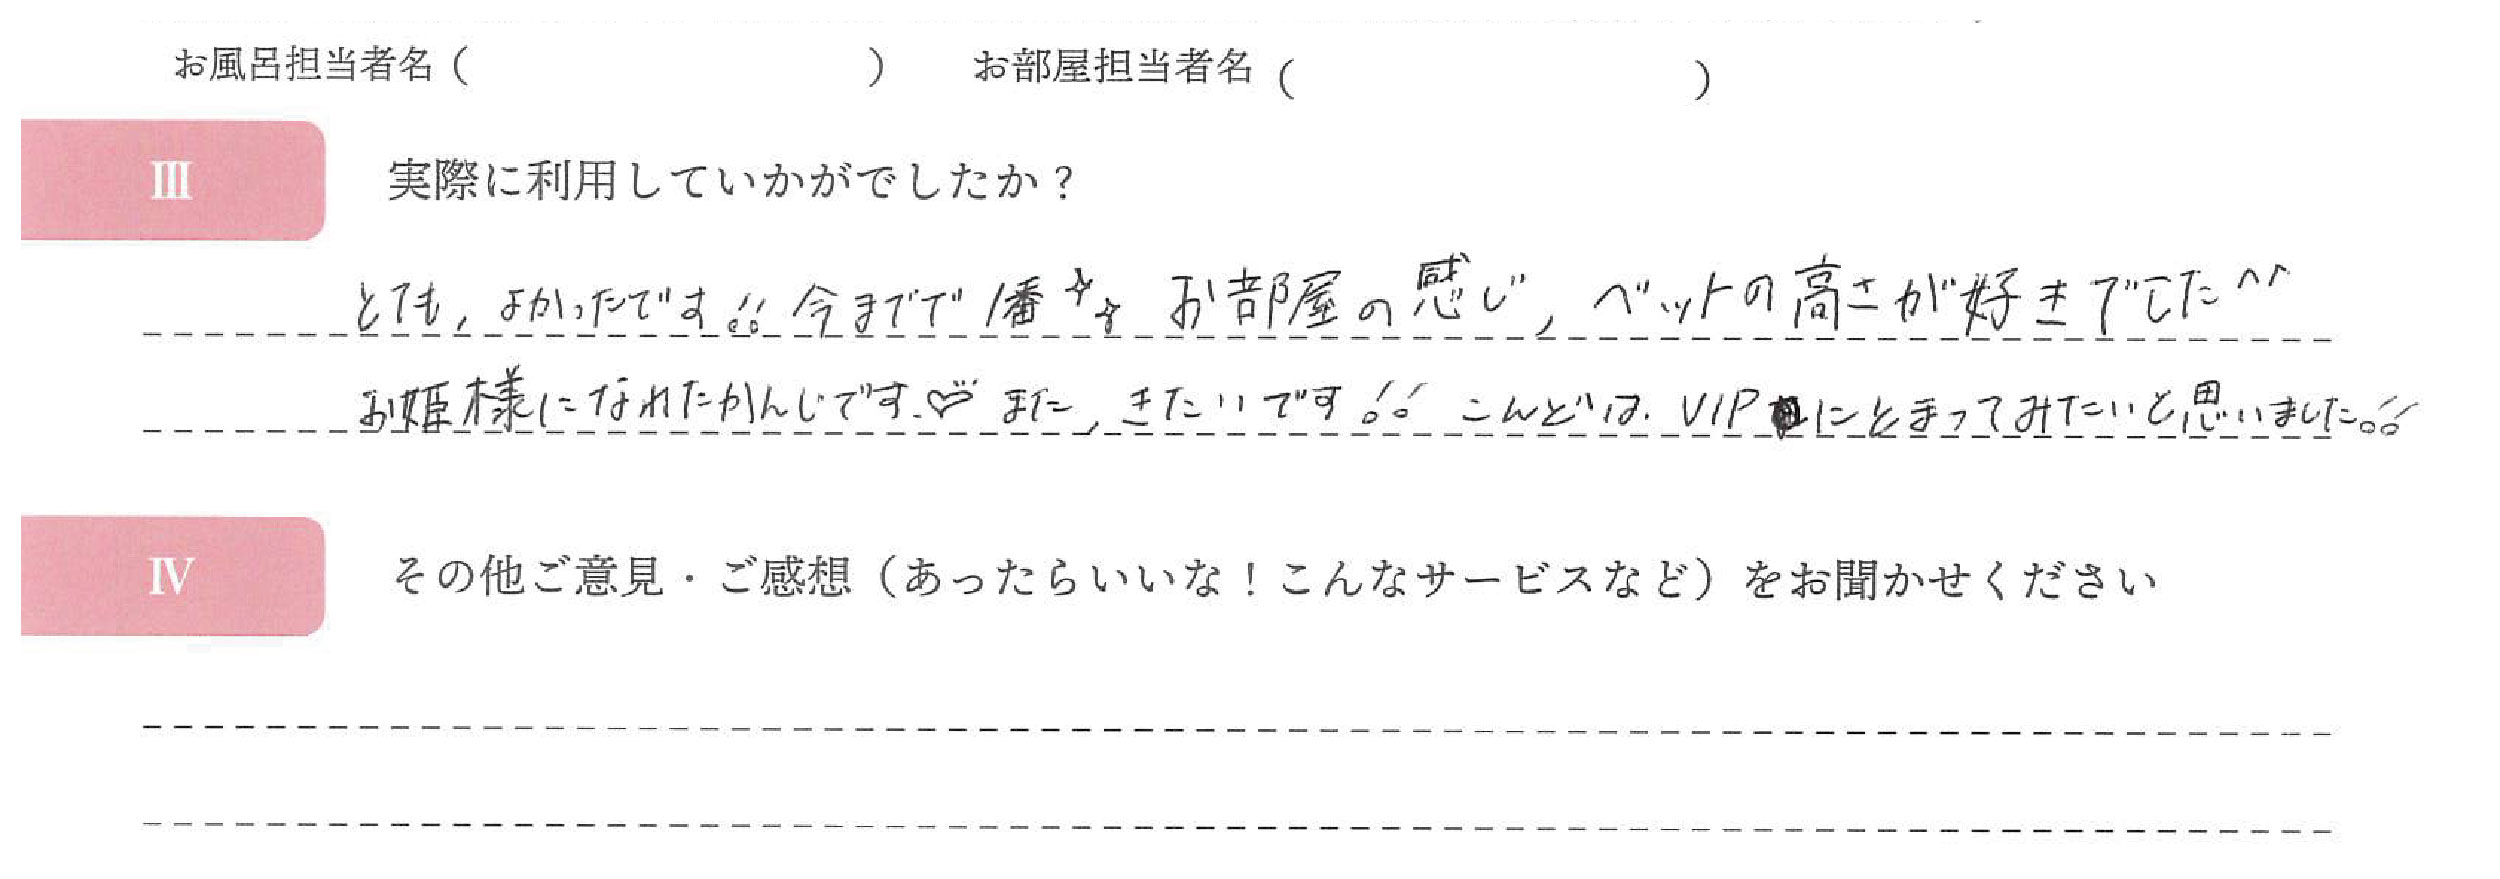 お風呂担当者名（　　　　　　　　　　）　お部屋担当者名（　　　　　　　　　　）
Ⅲ 実際に利用していかがでしたか？
とても、よかったです!! 今までで1番✧✧ お部屋の感じ、ベットの高さが好きでした^^
お姫様になれたかんじです♡ また、きたいです!! こんどは、VIPにとまってみたいと思いました!!
Ⅳ その他ご意見・ご感想（あったらいいな！こんなサービスなど）をお聞かせください